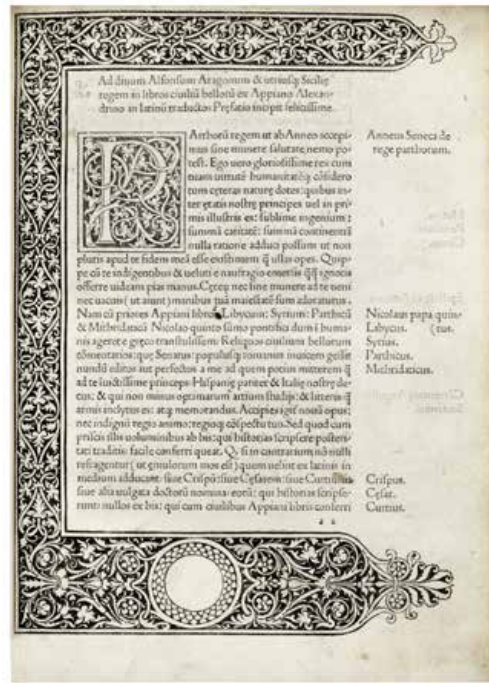 Ad diuum Alfonsum Aragonum & utriusq; Siciliȩ
regem in libros ciuiliũ bellorũ ex Appiano Alexan-
drino in latinũ traductos Prefatio incipit felicissime.
PArthorũ regem ut ab Anneo accepi-
mus sine munere salutare nemo po-
test. Ego uero gloriosissime rex cum
tuam uirtutẽ humanitatẽq; cõsidero
tum cȩteras naturȩ dotes: quibus in-
ter ȩtatis nostrȩ principes uel in pri-
mis illustris es: sublime ingenium:
summã caritatẽ: summã continentiã
nulla ratione adduci possum ut non
pluris apud te fidem meã esse existimem q̃ ullas opes. Quip-
pe cũ te indigentibus & ueluti e naufragio emersis q̃q̃ ignotis
offerre uideam pias manus. Cȩteȩ nec sine munere ad te ueni
nec uacuis (ut aiunt) manibus tuã maiestatẽ sum adoraturus.
Nam cũ priores Appiani libros Libycum: Syrium: Parthicũ
& Mithridaticũ Nicolao quinto sũmo pontifici dum ĩ huma-
nis ageret e grȩco transtulissem: Reliquos ciuilium bellorum
cõmentarios: que Senatus: populusq; romanus inuicem gessit
nundũ editos aut perfectos a me ad quem potius mitterem q̃
ad te iuictissime princeps Hispaniȩ pariter & Italiȩ nostrȩ de-
cus: & qui non minus optimarum artium studijs: & litteris q̃
armis inclytus es: atq; memorandus. Accipies igit nouũ opus:
nec indignũ regio animo: regioq; cõspectu tuo. Sed quod cum
priscis illis uoluminibus ab his: qui historias scripsere posteri-
tati traditis facile conferri queat. Q̃ si in contrarium nõ nulli
refragentur (ut ȩmulorum mos est) quem uelint ex latinis in
medium adducant: siue Crispũ: siue Cȩsarem: siue Curtium
siue alia uulgata doctorũ nomina: eorũ: qui historias scripse-
runt: nullos ex his: qui cum ciuilibus Appiani libris conferri
a 2
Anneus Seneca de
rege parthorum.
Nicolaus papa quin-
Labycus. (tus.
Syrius.
Parthicus.
Mithridaticus.
Crispus.
Cȩsar.
Curtius.